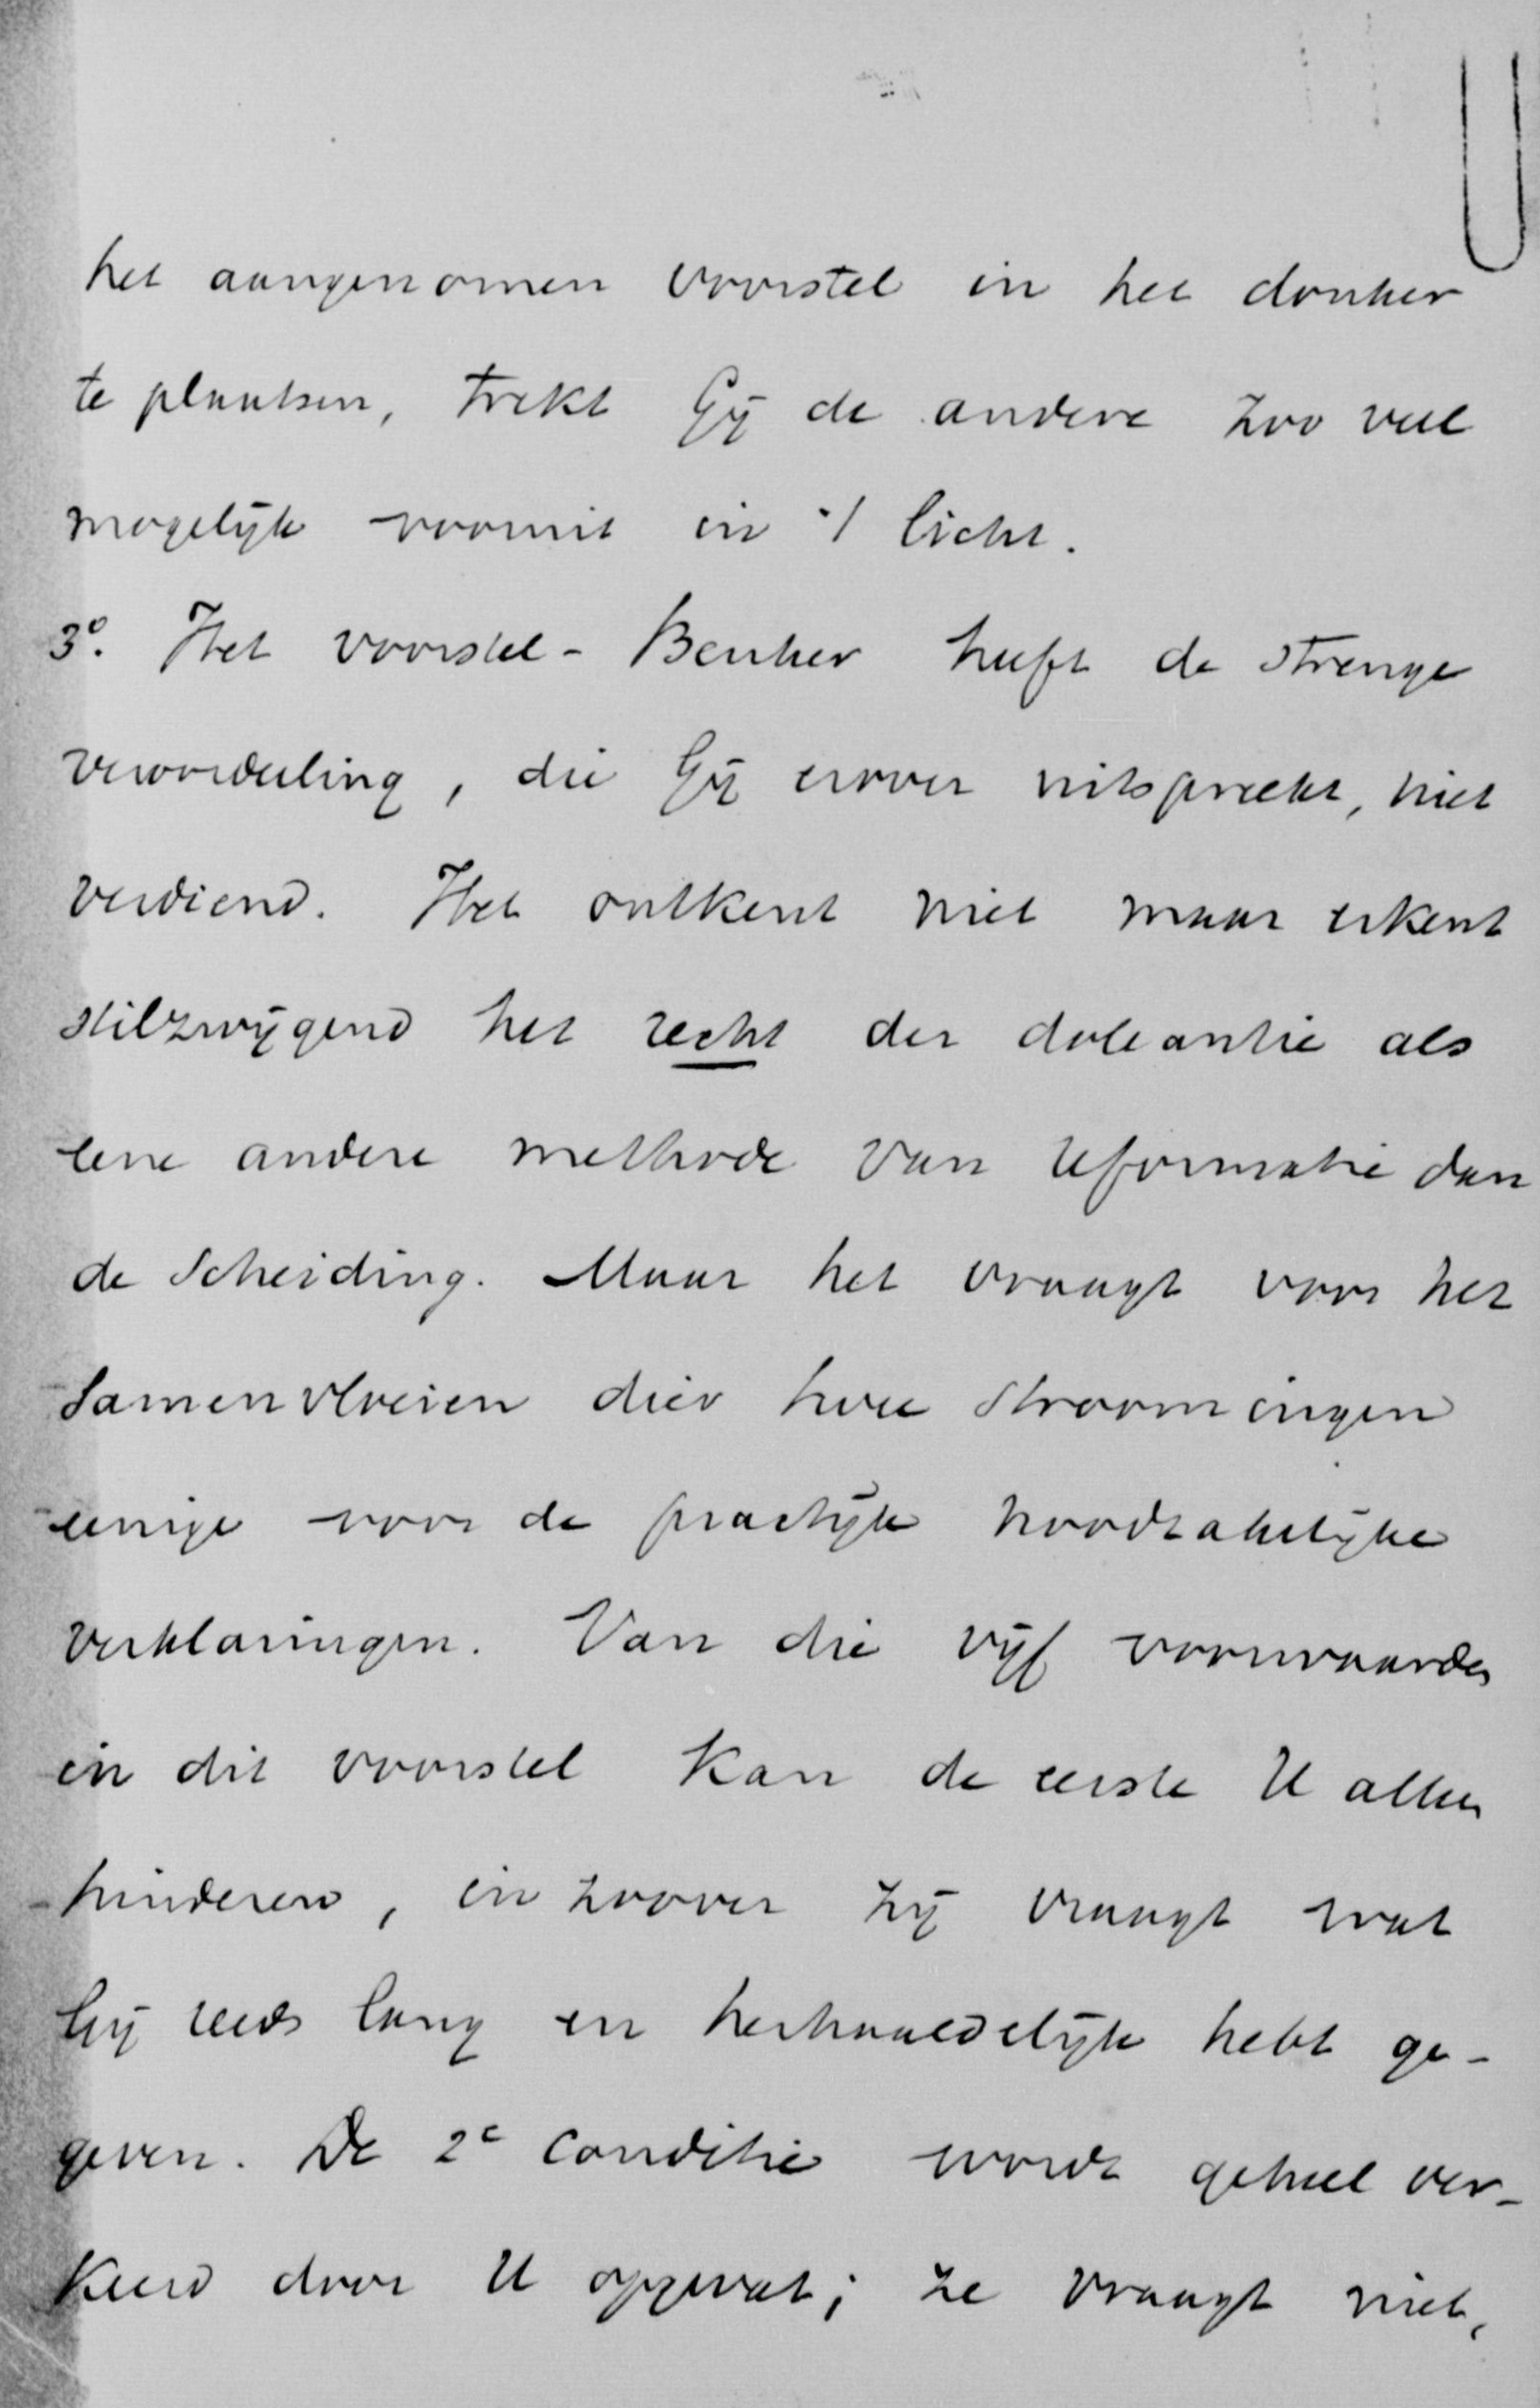 het aangenomen voorstel in het donker
te plaatsen, trekt Gij de andere zoo veel
mogelijk vooruit in 't licht.
3°. Het voorstel - Beuker heeft de strenge
veroordeeling, die Gij erover uitspreekt, niet
verdiend. Het ontkent niet maar erkent
stilzwijgend het recht der doleantie als
eene andere methode van reformatie dan
de Scheiding. Maar het vraagt voor het
samenvloeien dier twee stroomingen
eenige voor de practijk noodzakelijke
verklaringen. Van die vijf voorwaarden
in dit voorstel kan de eerste U alleen
hinderen, in zoover zij vraagt wat
Gij reeds lang en herhaaldelijk hebt ge-
geven. De 2e conditie wordt geheel ver-
keerd door U opgevat; ze vraagt niet,